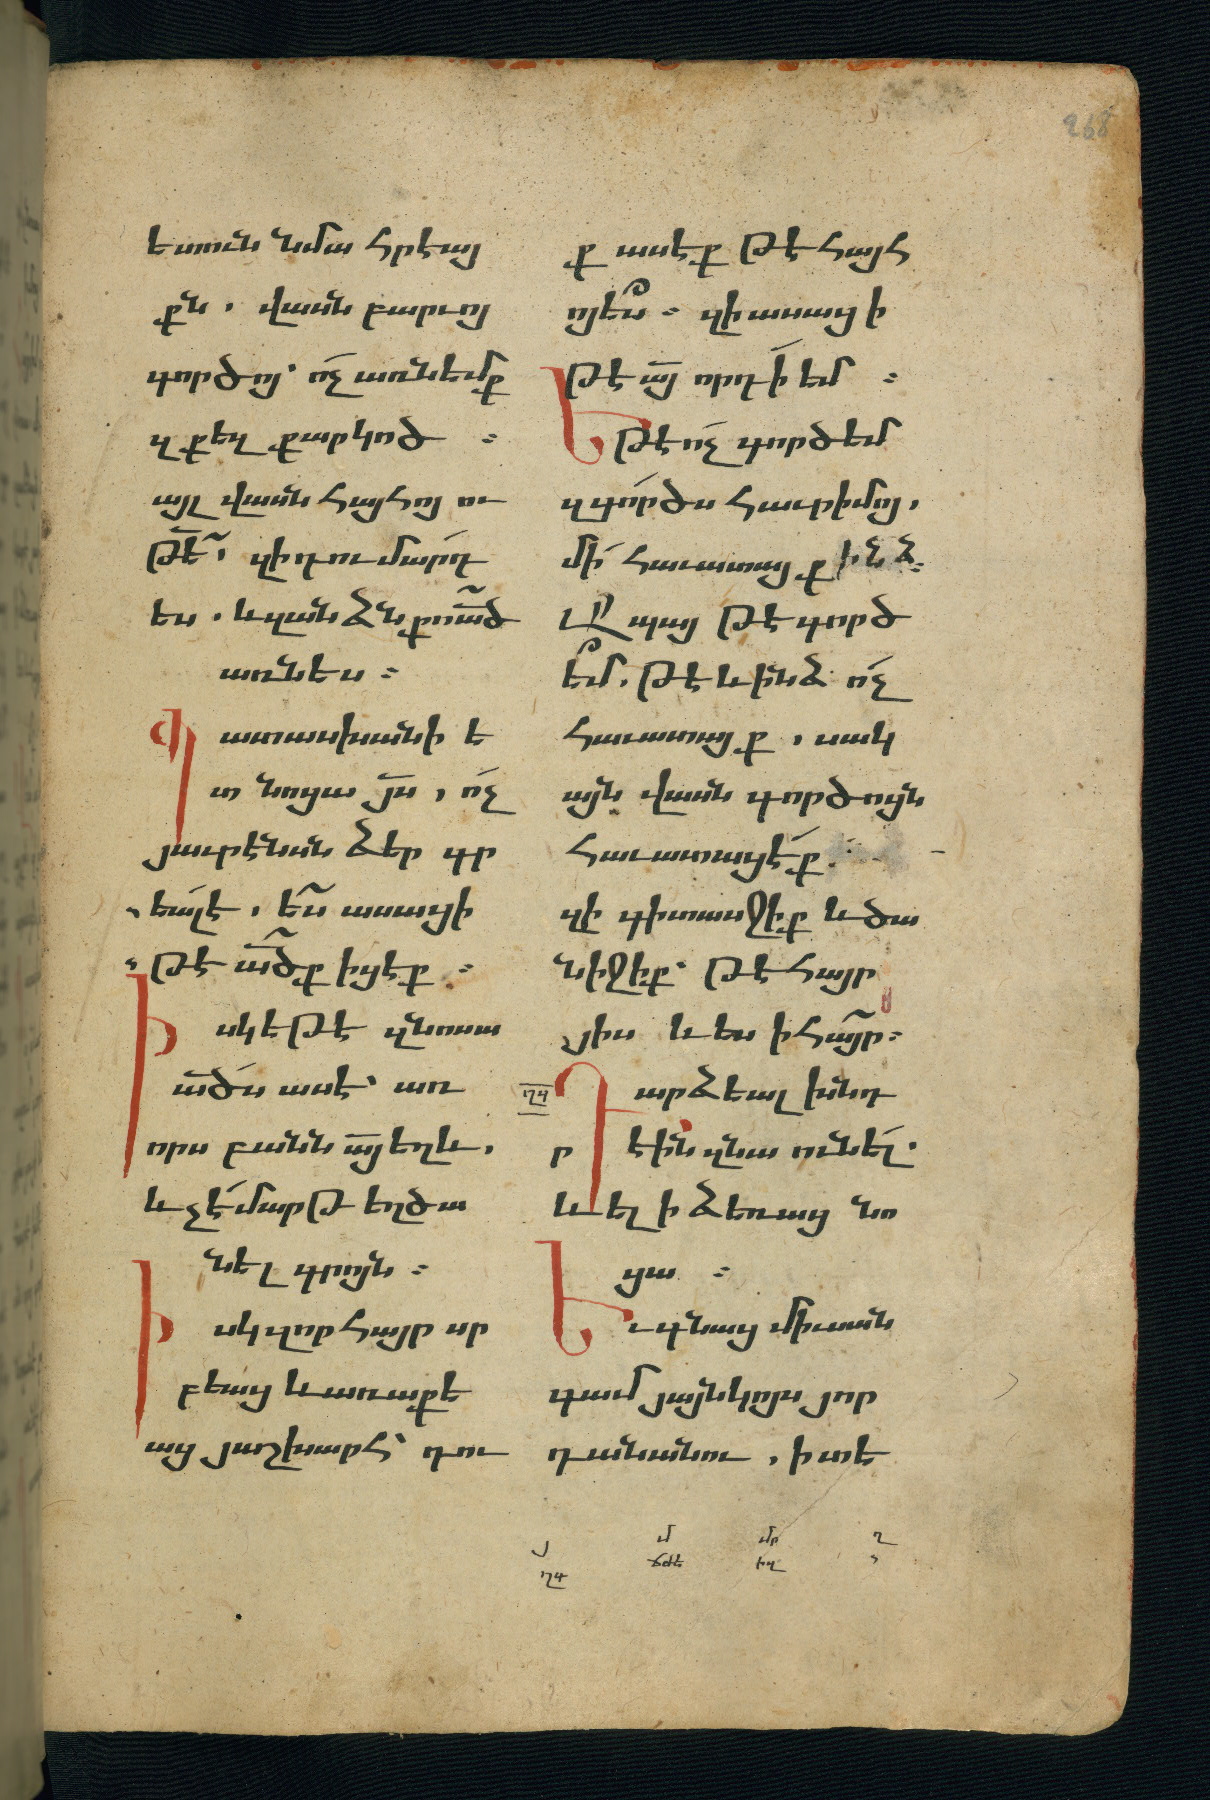 268
ետուն նմա հրէայ
քն ․ վասն բարւոյ
գործոյ՝ ո՛չ առնեմք
զքեզ քարկոծ ։
այլ վասն հայհոյու
թէ՛ ․ զի դու մարդ
ես ․ և զանձն քո ած
առնես ։
Պատասխանի ե
տ նոցա յս ․ ո՛չ
յաւրէնսն ձեր գր
եալ է ․ ես ասացի
թէ ածք իցէք ։
Իսկ եթէ զնոսա
ածս ասէ՝ առ
որս բանն այ եղև ․
և չէ մարթ եղծա
նել գրոյն ։
Իսկ զոր հայր սր
բեաց և առաքե
աց յաշխարհ՝ դու
ք ասէք թէ հայհ
ոյես ։ զի ասացի
թէ այ որդի եմ ։
Եթէ ո՛չ գործեմ
զգործս հաւր իմոյ ․
մի՛ հաւատայք ինձ ։
Ապայ թէ գործ
եմ ․ թէ և ինձ ո՛չ
հաւատայք ․ սակ
այն վասն գործոյն
հաւատացէք ․
զի գիտասջիք և ծա
նիջիք՝ թէ հայր
յիս և ես ի հայր ։
ղգ
Դարձեալ խնդ
ր էին զնա ունել ․
և ել ի ձեռաց նո
ցա ։
Եւ գնաց միւսան
գամ յայնկոյս յոր
դանանու ․ ի տե
յ մ մր ղ